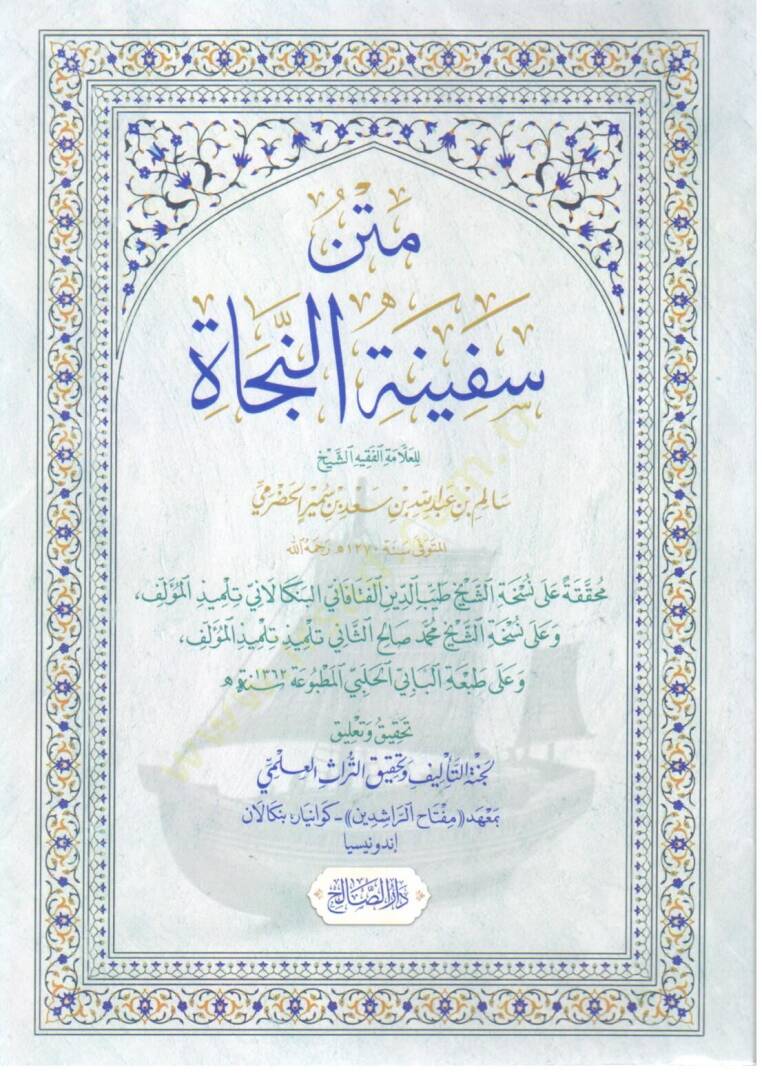 مَتْنُ
سَفِينَةِ النَّجَاةِ
لِلعَلَّامَةِ الفَقِيهِ الشَّيْخِ
سَالِمِ بْنِ عَبْدِ اللهِ بْنِ سَعْدِ بْنِ سُمَيْرٍ الحَضْرَمِيِّ
المتوفى سنة ١٢٧٠هـ رحمه الله
مُحَقَّقَةٌ عَلَى نُسْخَةِ الشَّيْخِ طَيِّبِ الدِّينِ الفَتَافَانِي البَنْكَالَانِيِّ تِلْمِيذِ المُؤَلِّفِ،
وَعَلَى نُسْخَةِ الشَّيْخِ مُحَمَّد صَالِح الثَّانِي تِلْمِيذِ تِلْمِيذِ المُؤَلِّفِ،
وَعَلَى طَبْعَةِ البَابِي الحَلَبِي المَطْبُوعَة سنة ١٣٦٢هـ
تَحْقِيقُ وَتَعْلِيق
لَجْنَةِ التَّأْلِيفِ وَتَحْقِيقِ التُّرَاثِ العِلْمِيِّ
بِمَعْهَدِ ((مِفْتَاحِ الرَّاشِدِين)) - كَوَانْيَار، بنكَالَان
إندونيسيا
دَارُ الصَّالِح